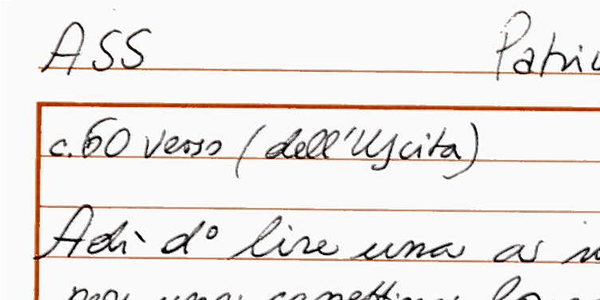 ASS Patri
c. 60 verso (dell'Uscita)
Adì d° lire una as
per una